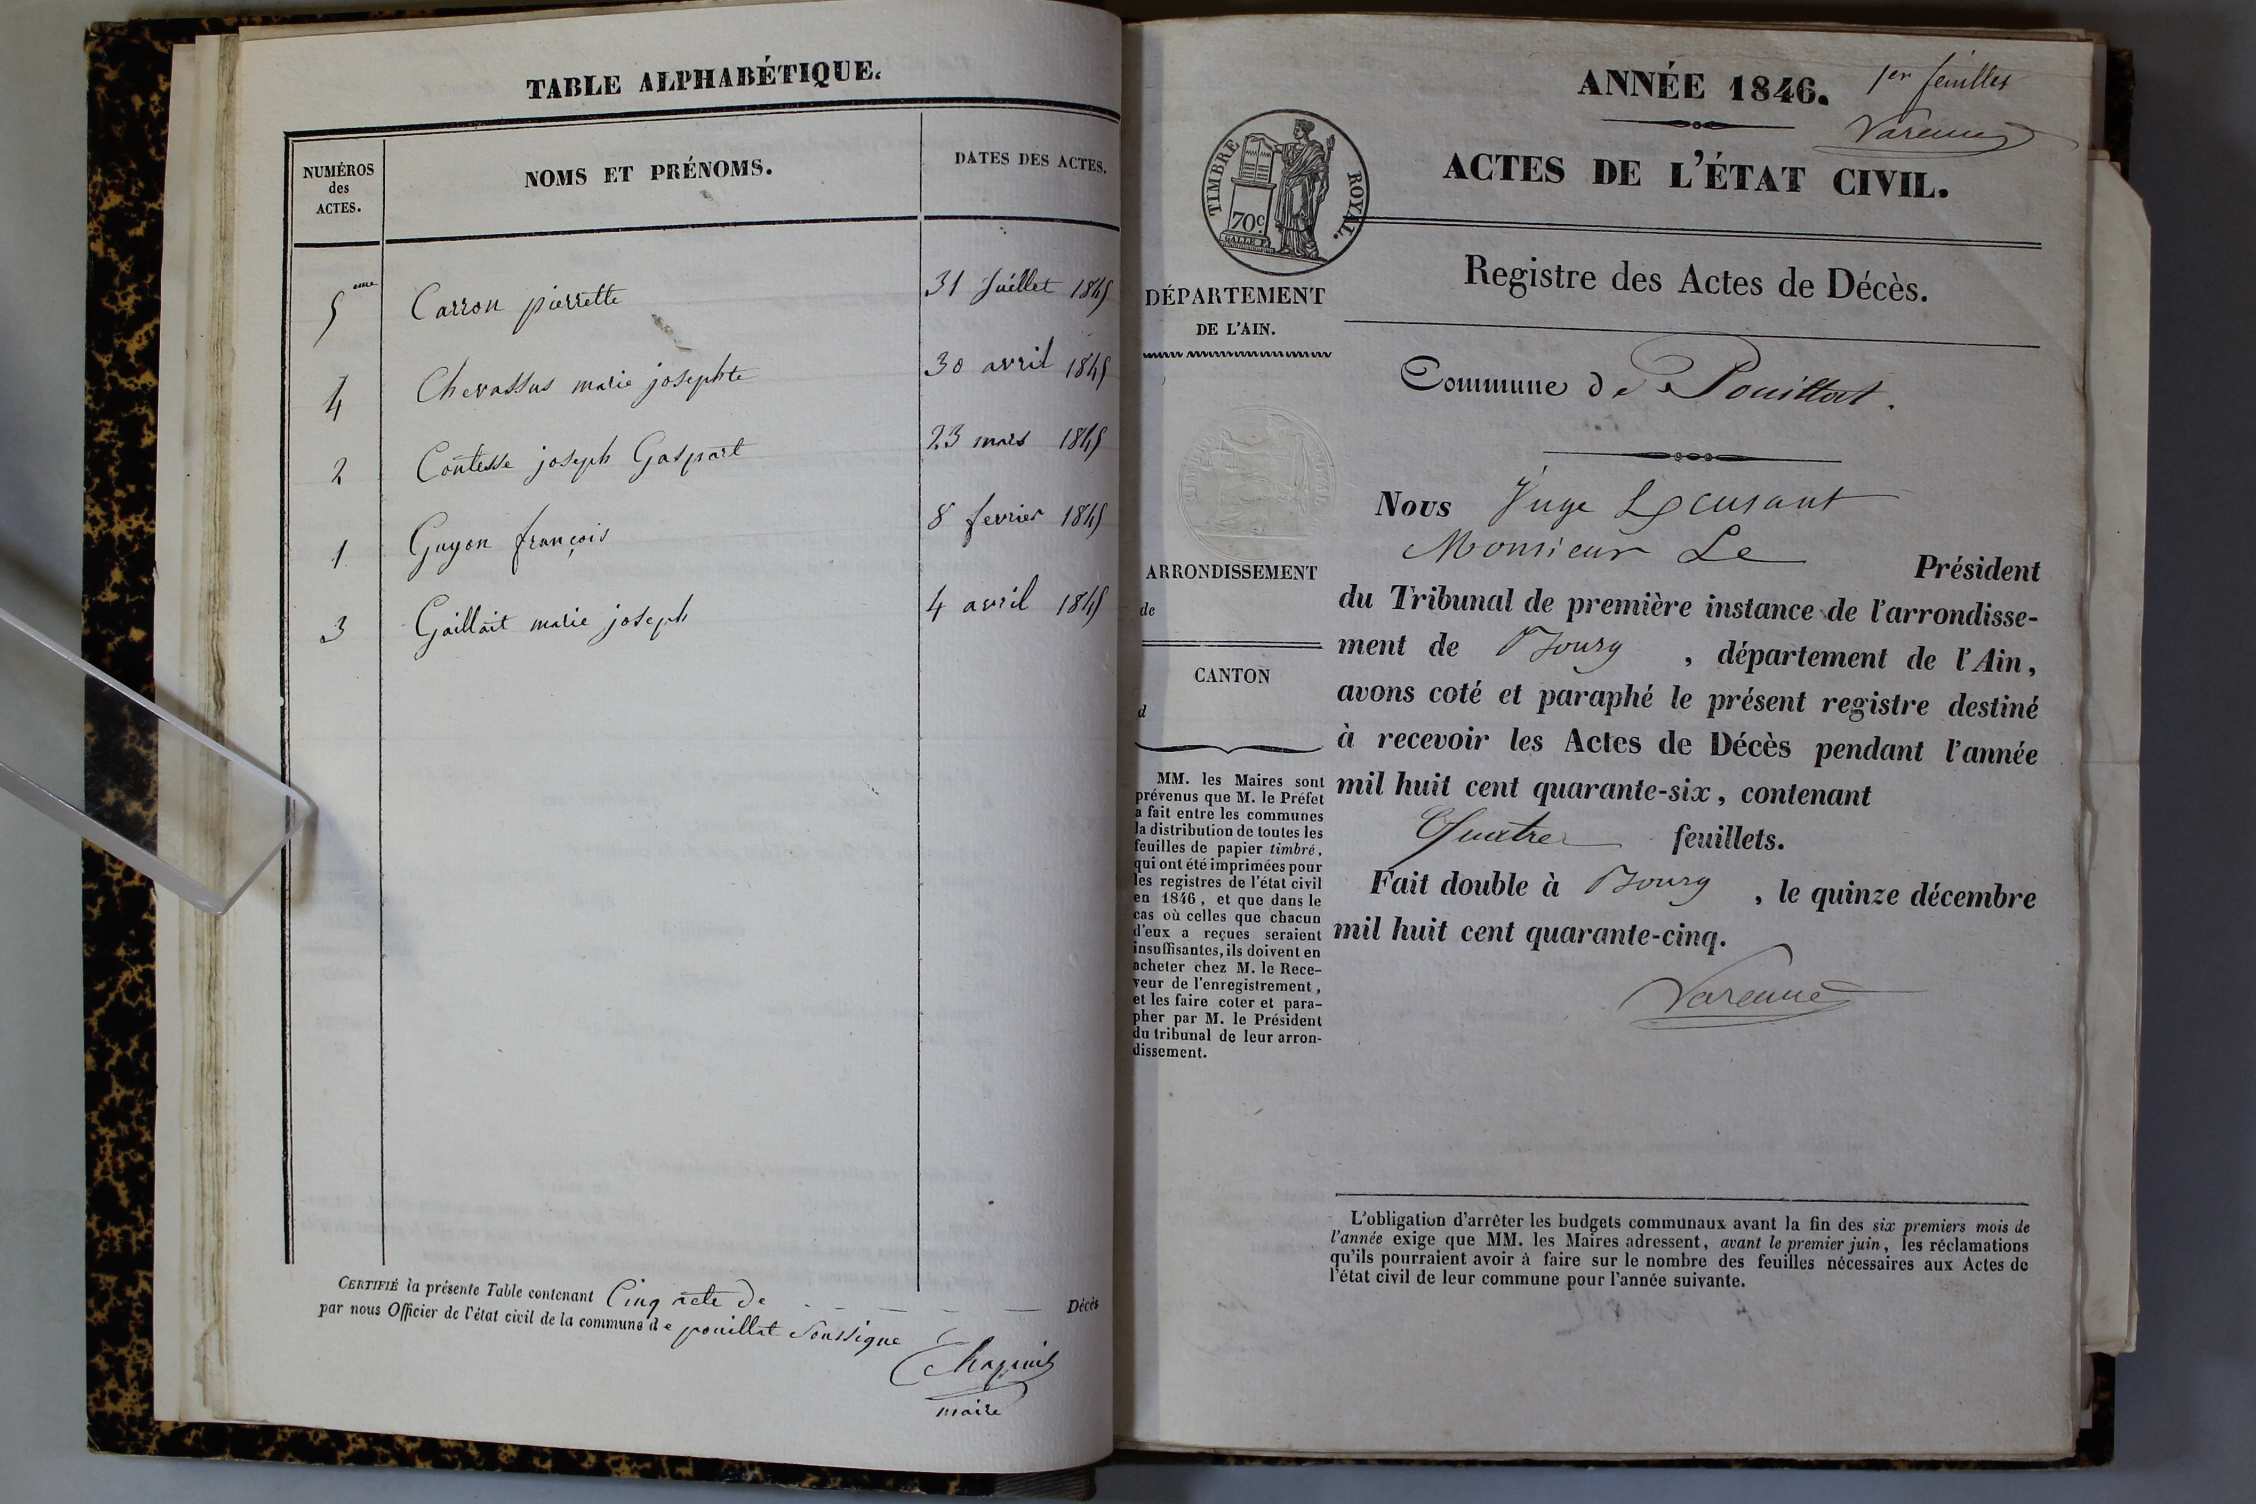 TABLE ALPHABÉTIQUE.
NUMÉROS
des
ACTES.
NOMS ET PRÉNOMS.
DATES DES ACTES.
5eme Carron pierrette 31 Juillet 1845
4 Chevassus marie josephte 30 avril 1845
2 Contesse joseph Gaspart 23 mars 1845
1 Guyon françois 8 fevrier 1845
3 Gaillait marie joseph 4 avril 1845
CERTIFIÉ la présente Table contenant Cinq acte de Décès
par nous Officier de l'état civil de la commune de pouillat Soussigne
Chapuis
maire
ANNÉE 1846.
1er feuillet
Varenne
ACTES DE L'ÉTAT CIVIL.
TIMBRE ROYAL.
70c
Registre des Actes de Décès.
DÉPARTEMENT
DE L'AIN.
Commune de Pouillat.
ARRONDISSEMENT
de
CANTON
d
MM. les Maires sont
prévenus que M. le Préfet
a fait entre les communes
la distribution de toutes les
feuilles de papier timbré,
qui ont été imprimées pour
les registres de l'état civil
en 1846, et que dans le
cas où celles que chacun
d'eux a reçues seraient
insuffisantes, ils doivent en
acheter chez M. le Rece-
veur de l'enregistrement,
et les faire coter et para-
pher par M. le Président
du tribunal de leur arron-
dissement.
Nous Juge
Monsieur Le Président
du Tribunal de première instance de l'arrondisse-
ment de Bourg, département de l'Ain,
avons coté et paraphé le présent registre destiné
à recevoir les Actes de Décès pendant l'année
mil huit cent quarante-six, contenant
Quatre feuillets.
Fait double à Bourg, le quinze décembre
mil huit cent quarante-cinq.
Varenne
L'obligation d'arrêter les budgets communaux avant la fin des six premiers mois de
l'année exige que MM. les Maires adressent, avant le premier juin, les réclamations
qu'ils pourraient avoir à faire sur le nombre des feuilles nécessaires aux Actes de
l'état civil de leur commune pour l'année suivante.